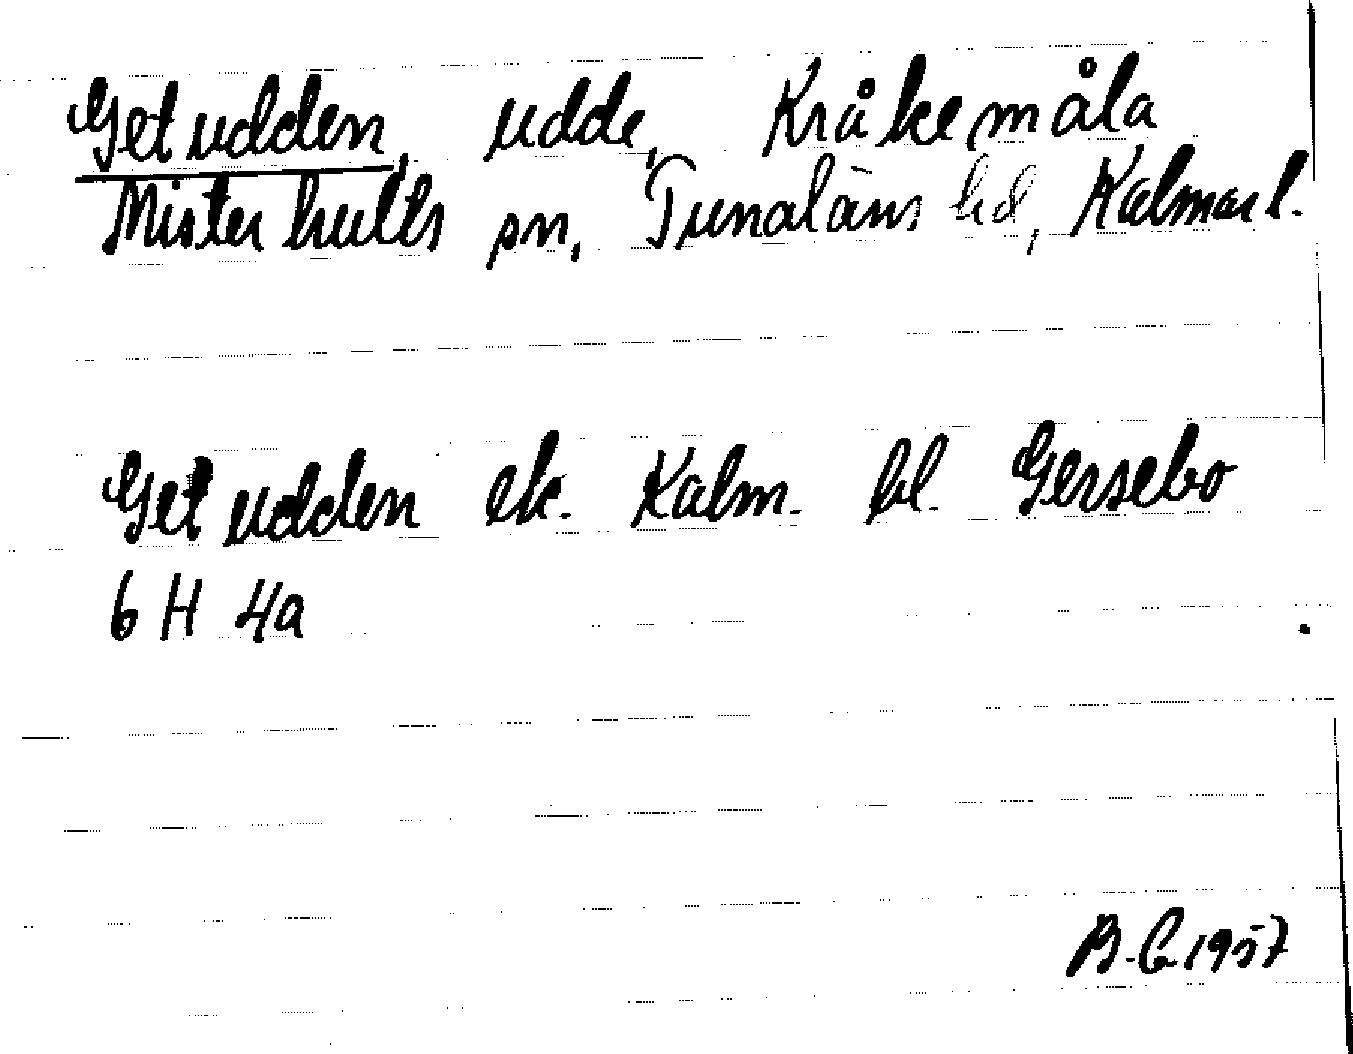 Getudden, udde, Kråkemåla
Misterhults sn, Tunaläns hd, Kalmar l.
Getudden ek. Kalm. bl. Gersebo
6 H 4a
B.C. 1957